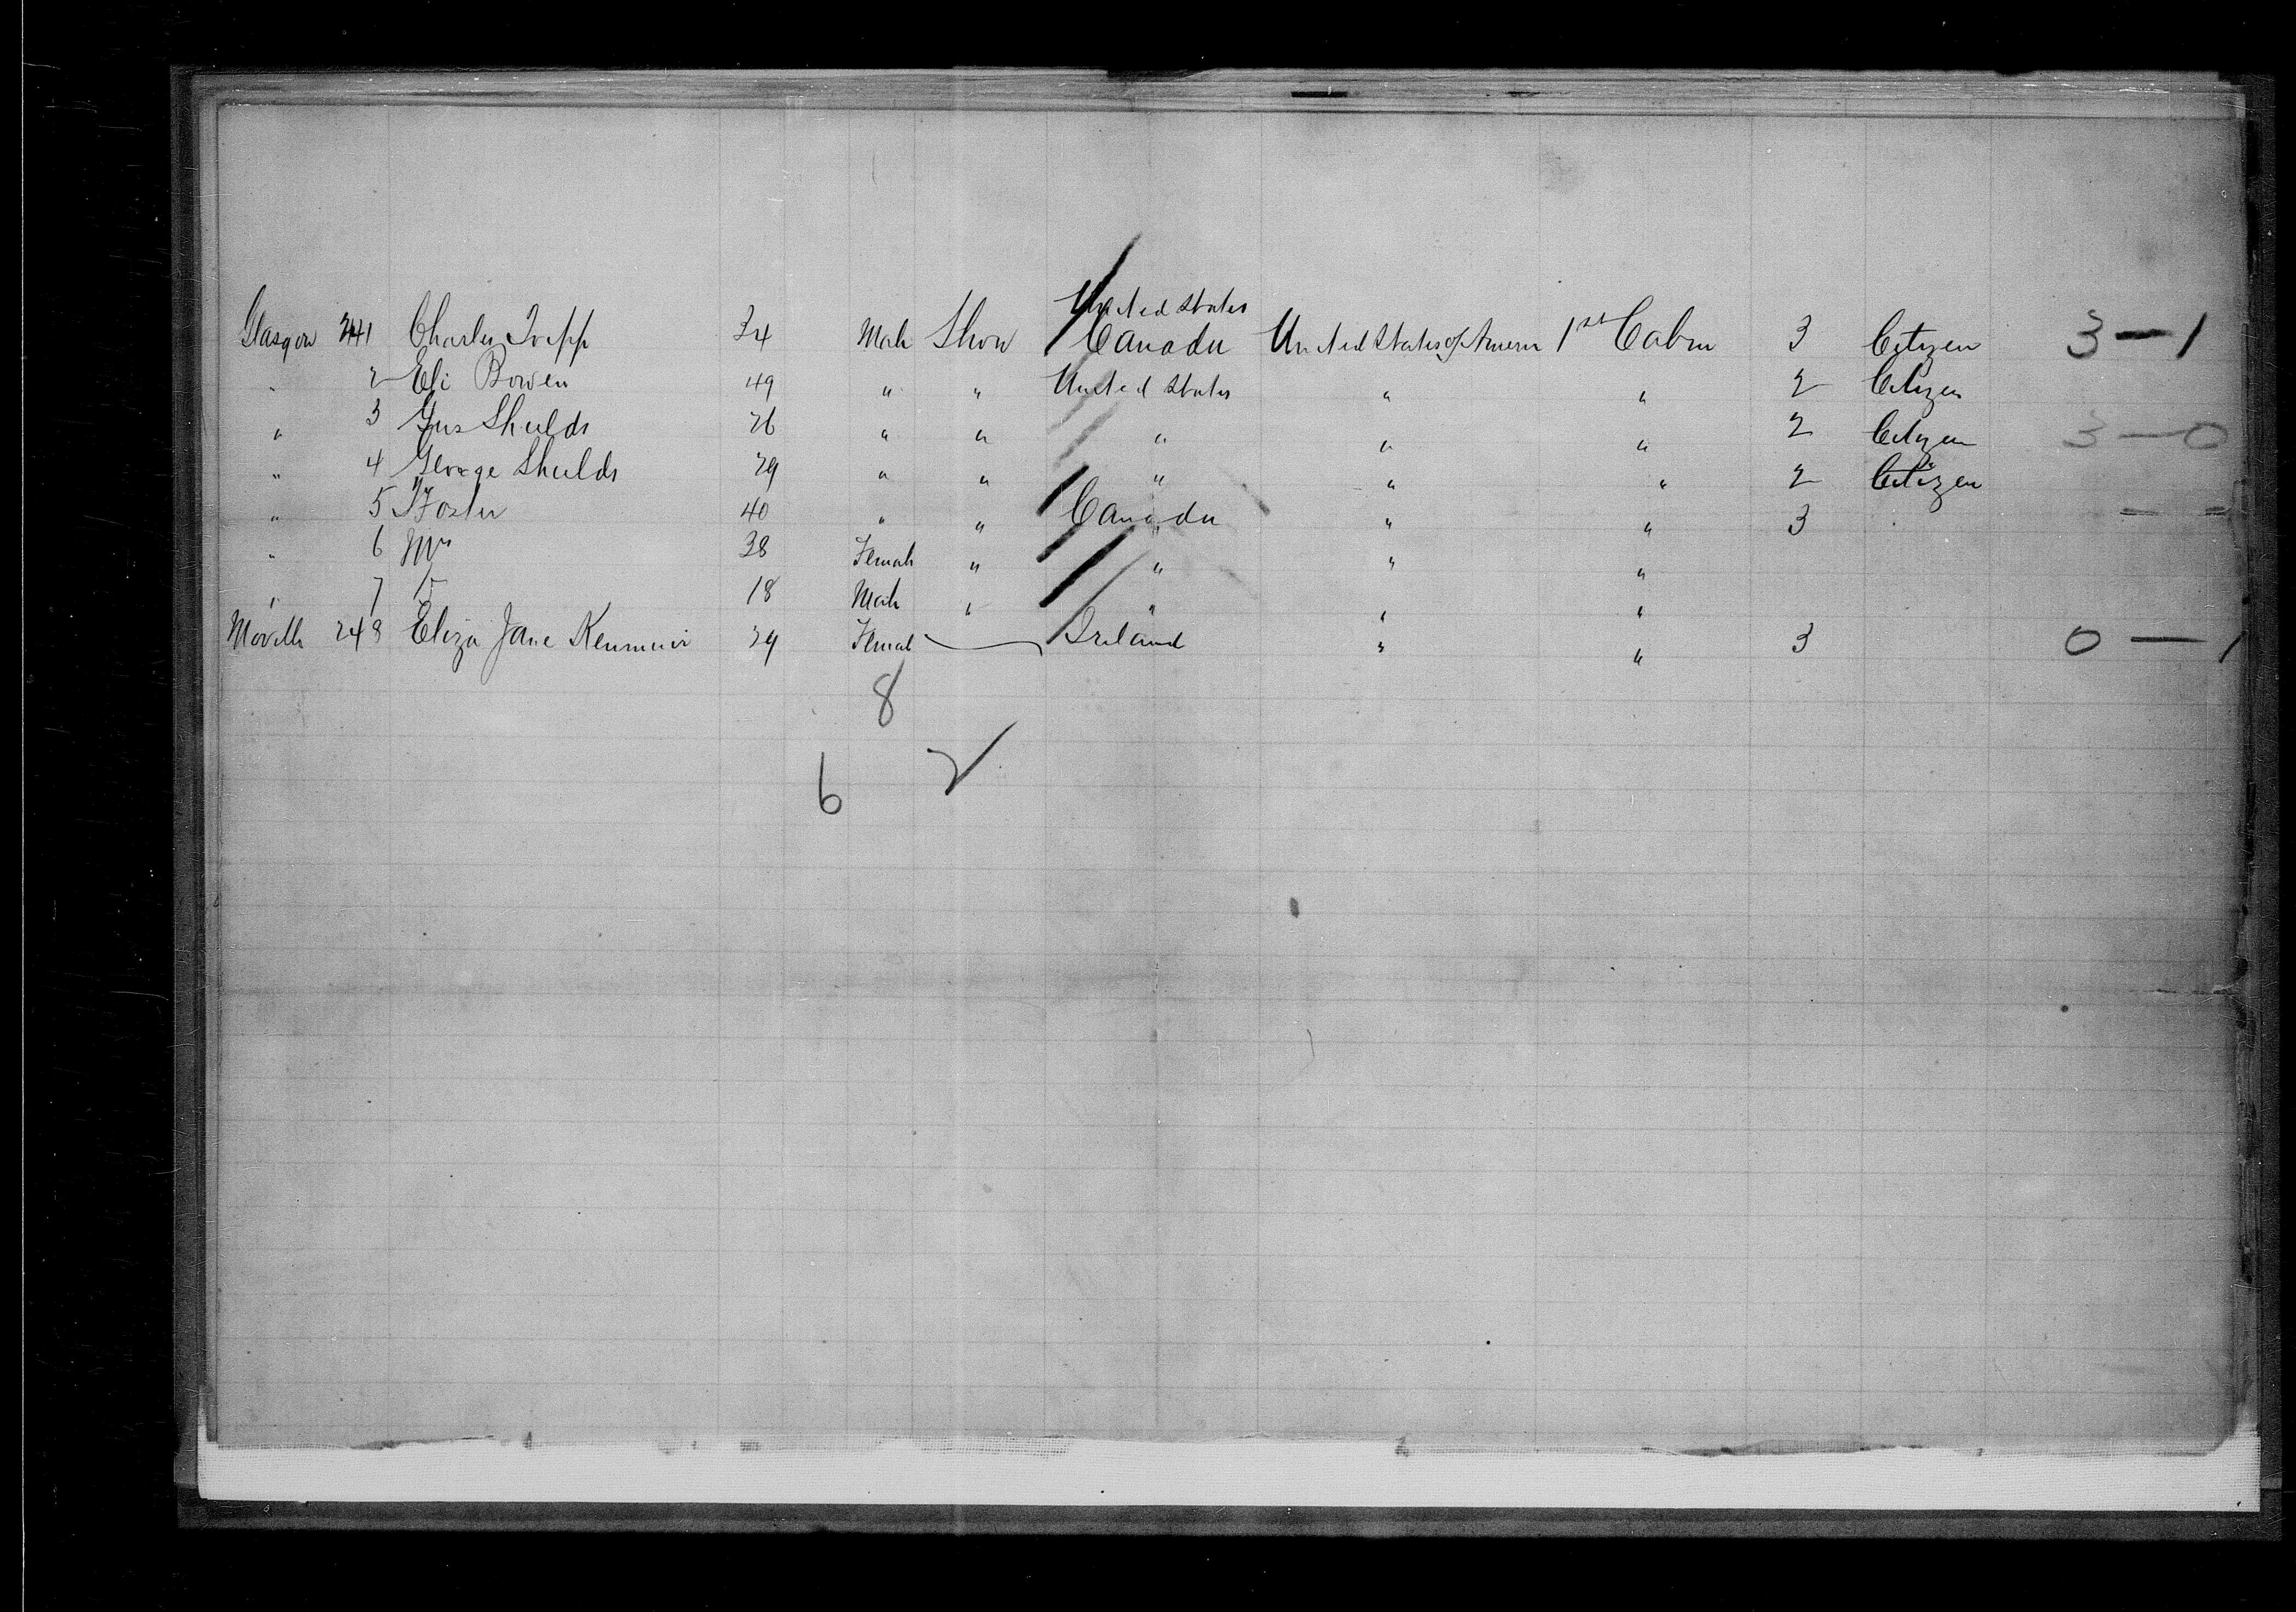 United States
Glasgow 241 Charles Tripp 34 Male Show Canada United States of America 1st Cabin 3 Citizen 3 — 1
" 2 Eli Bowen 49 " " United States " " 2 Citizen
" 3 Gus Shields 26 " " " " " 2 Citizen 3 — 0
" 4 George Shields 29 " " " " " 2 Citizen
" 5 Foster 40 " " Canada " " 3 - -
" 6 Mrs 38 Female " " " "
" 7 18 Male " " " "
Moville 248 Eliza Jane 29 Female Ireland " " 3 0 — 1
8
6 2